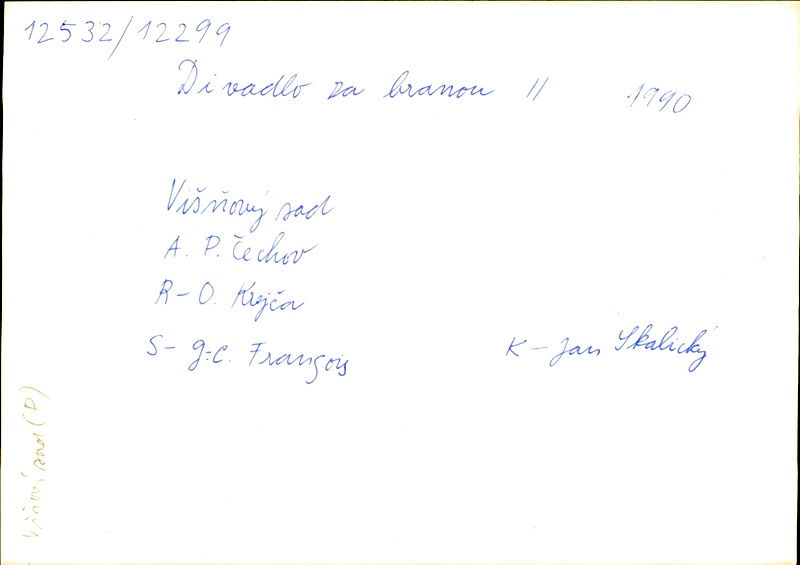 12532/12299
Divadlo za branou II 1990
Višňový sad
A. P. Čechov
R - O. Krejča
S - g.c. François K - Jan Skalický
Višňový sad (P)